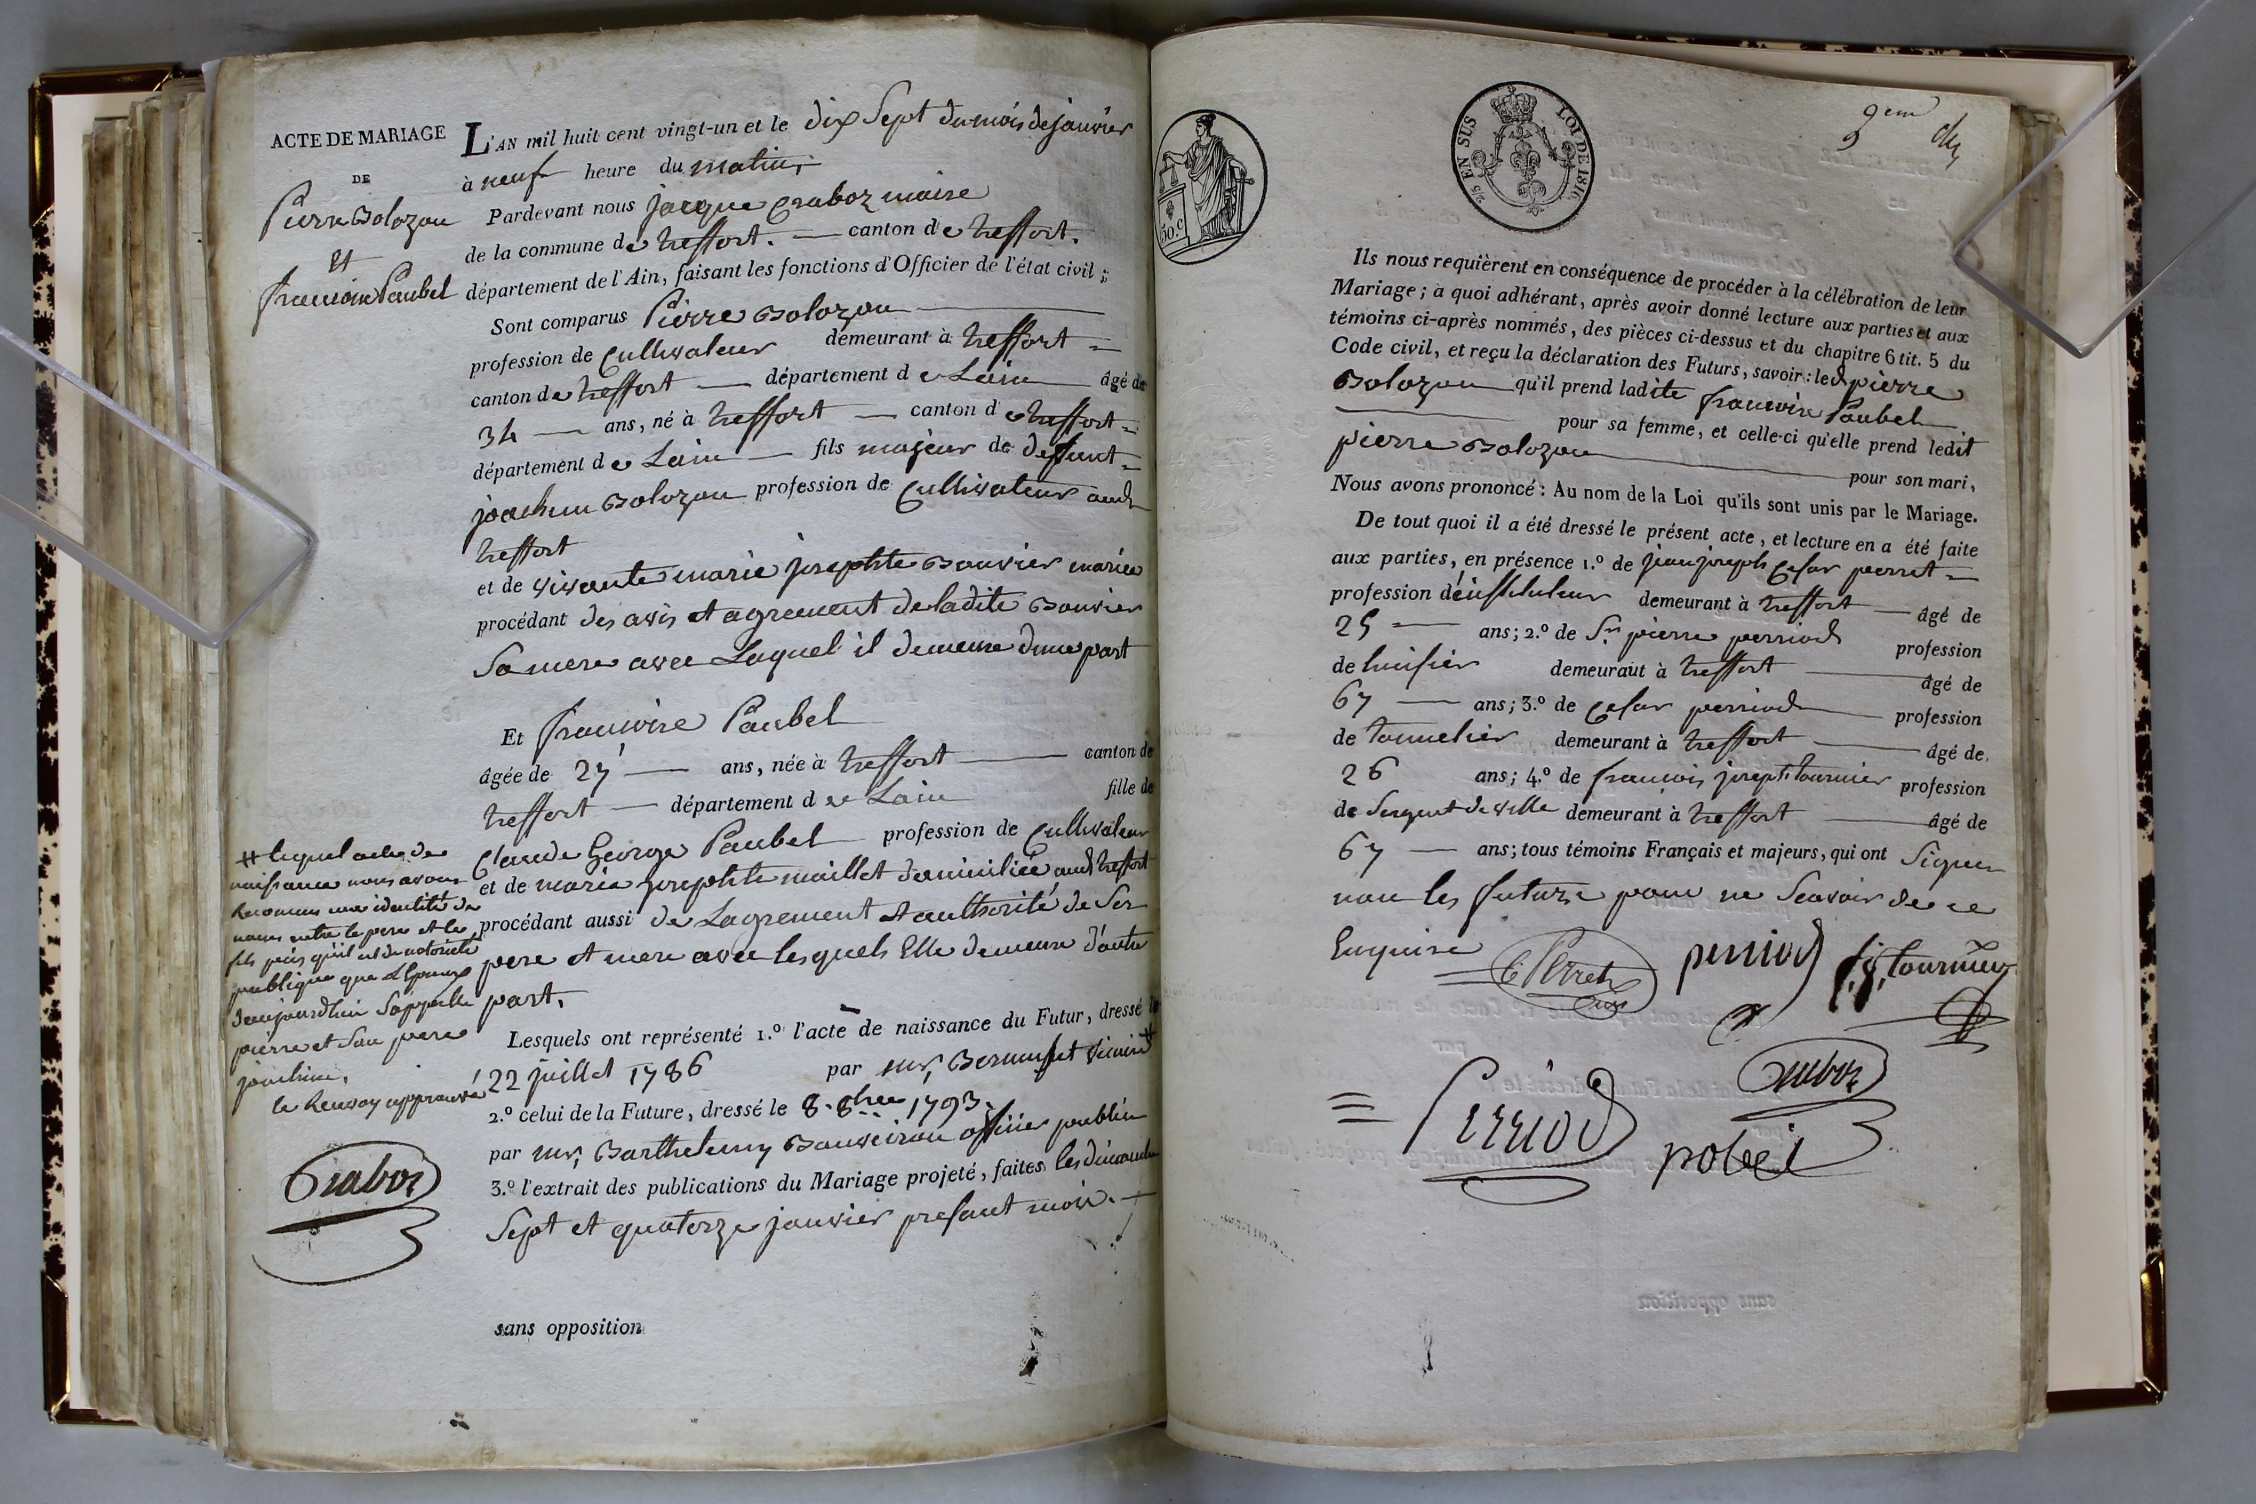 ACTE DE MARIAGE
DE
Pierre Bolozon
et
francoise Paubel
L'AN mil huit cent vingt-un et le dix Sept du mois de janvier
à neuf heure du matin,
Pardevant nous jacque Craboz maire
de la commune de treffort. canton de treffort.
département de l'Ain, faisant les fonctions d'Officier de l'état civil ;
Sont comparus Pierre Bolozon
profession de Cultivateur demeurant à treffort
canton de treffort département de Lain âgé de
34 ans, né à treffort canton de treffort
département de Lain fils majeur de deffunt
joachim Bolozon profession de Cultivateur audt
treffort
et de vivante marie josephte Bouvier mariée
procédant des avis et agrement de ladite Bouvier
Sa mere avec Laquel il demeure dune part
Et francoise Paubel
âgée de 27 ans, née à treffort canton de
treffort département de Lain fille de
Claude George Paubel profession de Cultivateur
et de marie josephte maillet domiciliée audt treffort
procédant aussi de Lagrement et authorité de Ses
pere et mere avec lesquels Elle demeure d'autre
part.
Lesquels ont représenté 1.º l'acte de naissance du Futur, dressé le
22 juillet 1786 par mr, vicaire #
2.º celui de la Future, dressé le 8. 8bre 1793.
par mr, Barthelemy officier public
3.º l'extrait des publications du Mariage projeté, faites les dimanche
Sept et quatorze janvier present mois.
sans opposition
# lequel acte de
naissance nous avons
Reconnu une identité de
noms entre le pere et le
fils puis qu'il est de notorieté
publique que L'Epoux
daujourdhui Sappelle
pierre et Son pere
joachim.
le Renvoy approuvé
Craboz
50.C
2/5 EN SUS LOI DE 1816
9em
Ils nous requièrent en conséquence de procéder à la célébration de leur
Mariage ; à quoi adhérant, après avoir donné lecture aux parties et aux
témoins ci-après nommés, des pièces ci-dessus et du chapitre 6 tit. 5 du
Code civil, et reçu la déclaration des Futurs, savoir : ledt pierre
Bolozon qu'il prend ladite francoise Paubel
pour sa femme, et celle-ci qu'elle prend ledit
pierre Bolozon pour son mari,
Nous avons prononcé : Au nom de la Loi qu'ils sont unis par le Mariage.
De tout quoi il a été dressé le présent acte, et lecture en a été faite
aux parties, en présence 1.º de jean joseph Cesar perret
profession d'instituteur demeurant à treffort âgé de
25 ans ; 2.º de Sr. pierre perriod profession
de huissier demeurant à treffort âgé de
67 ans ; 3.º de Cesar perriod profession
de tonnelier demeurant à treffort âgé de
26 ans ; 4.º de francois joseph tournier profession
de Sergent de ville demeurant à treffort âgé de
67 ans ; tous témoins Français et majeurs, qui ont Signer
non les futurs pour ne Scavoir de ce
Enquise
C Perret perriod f. j. tournier
Craboz
Perriod
sans opposition